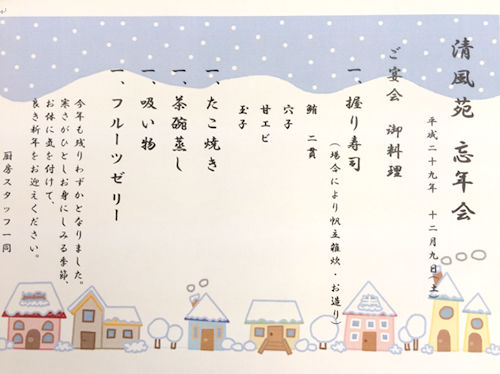 清風苑 忘年会
平成二十九年 十二月九日(土)
ご宴会 御料理
一、握り寿司
(場合により帆立雑炊・お造り)
鮪 二貫
穴子
甘エビ
玉子
一、たこ焼き
一、茶碗蒸し
一、吸い物
一、フルーツゼリー
今年も残りわずかとなりました。
寒さがひとしお身にしみる季節、
お体に気を付けて、
良き新年をお迎えください。
厨房スタッフ一同